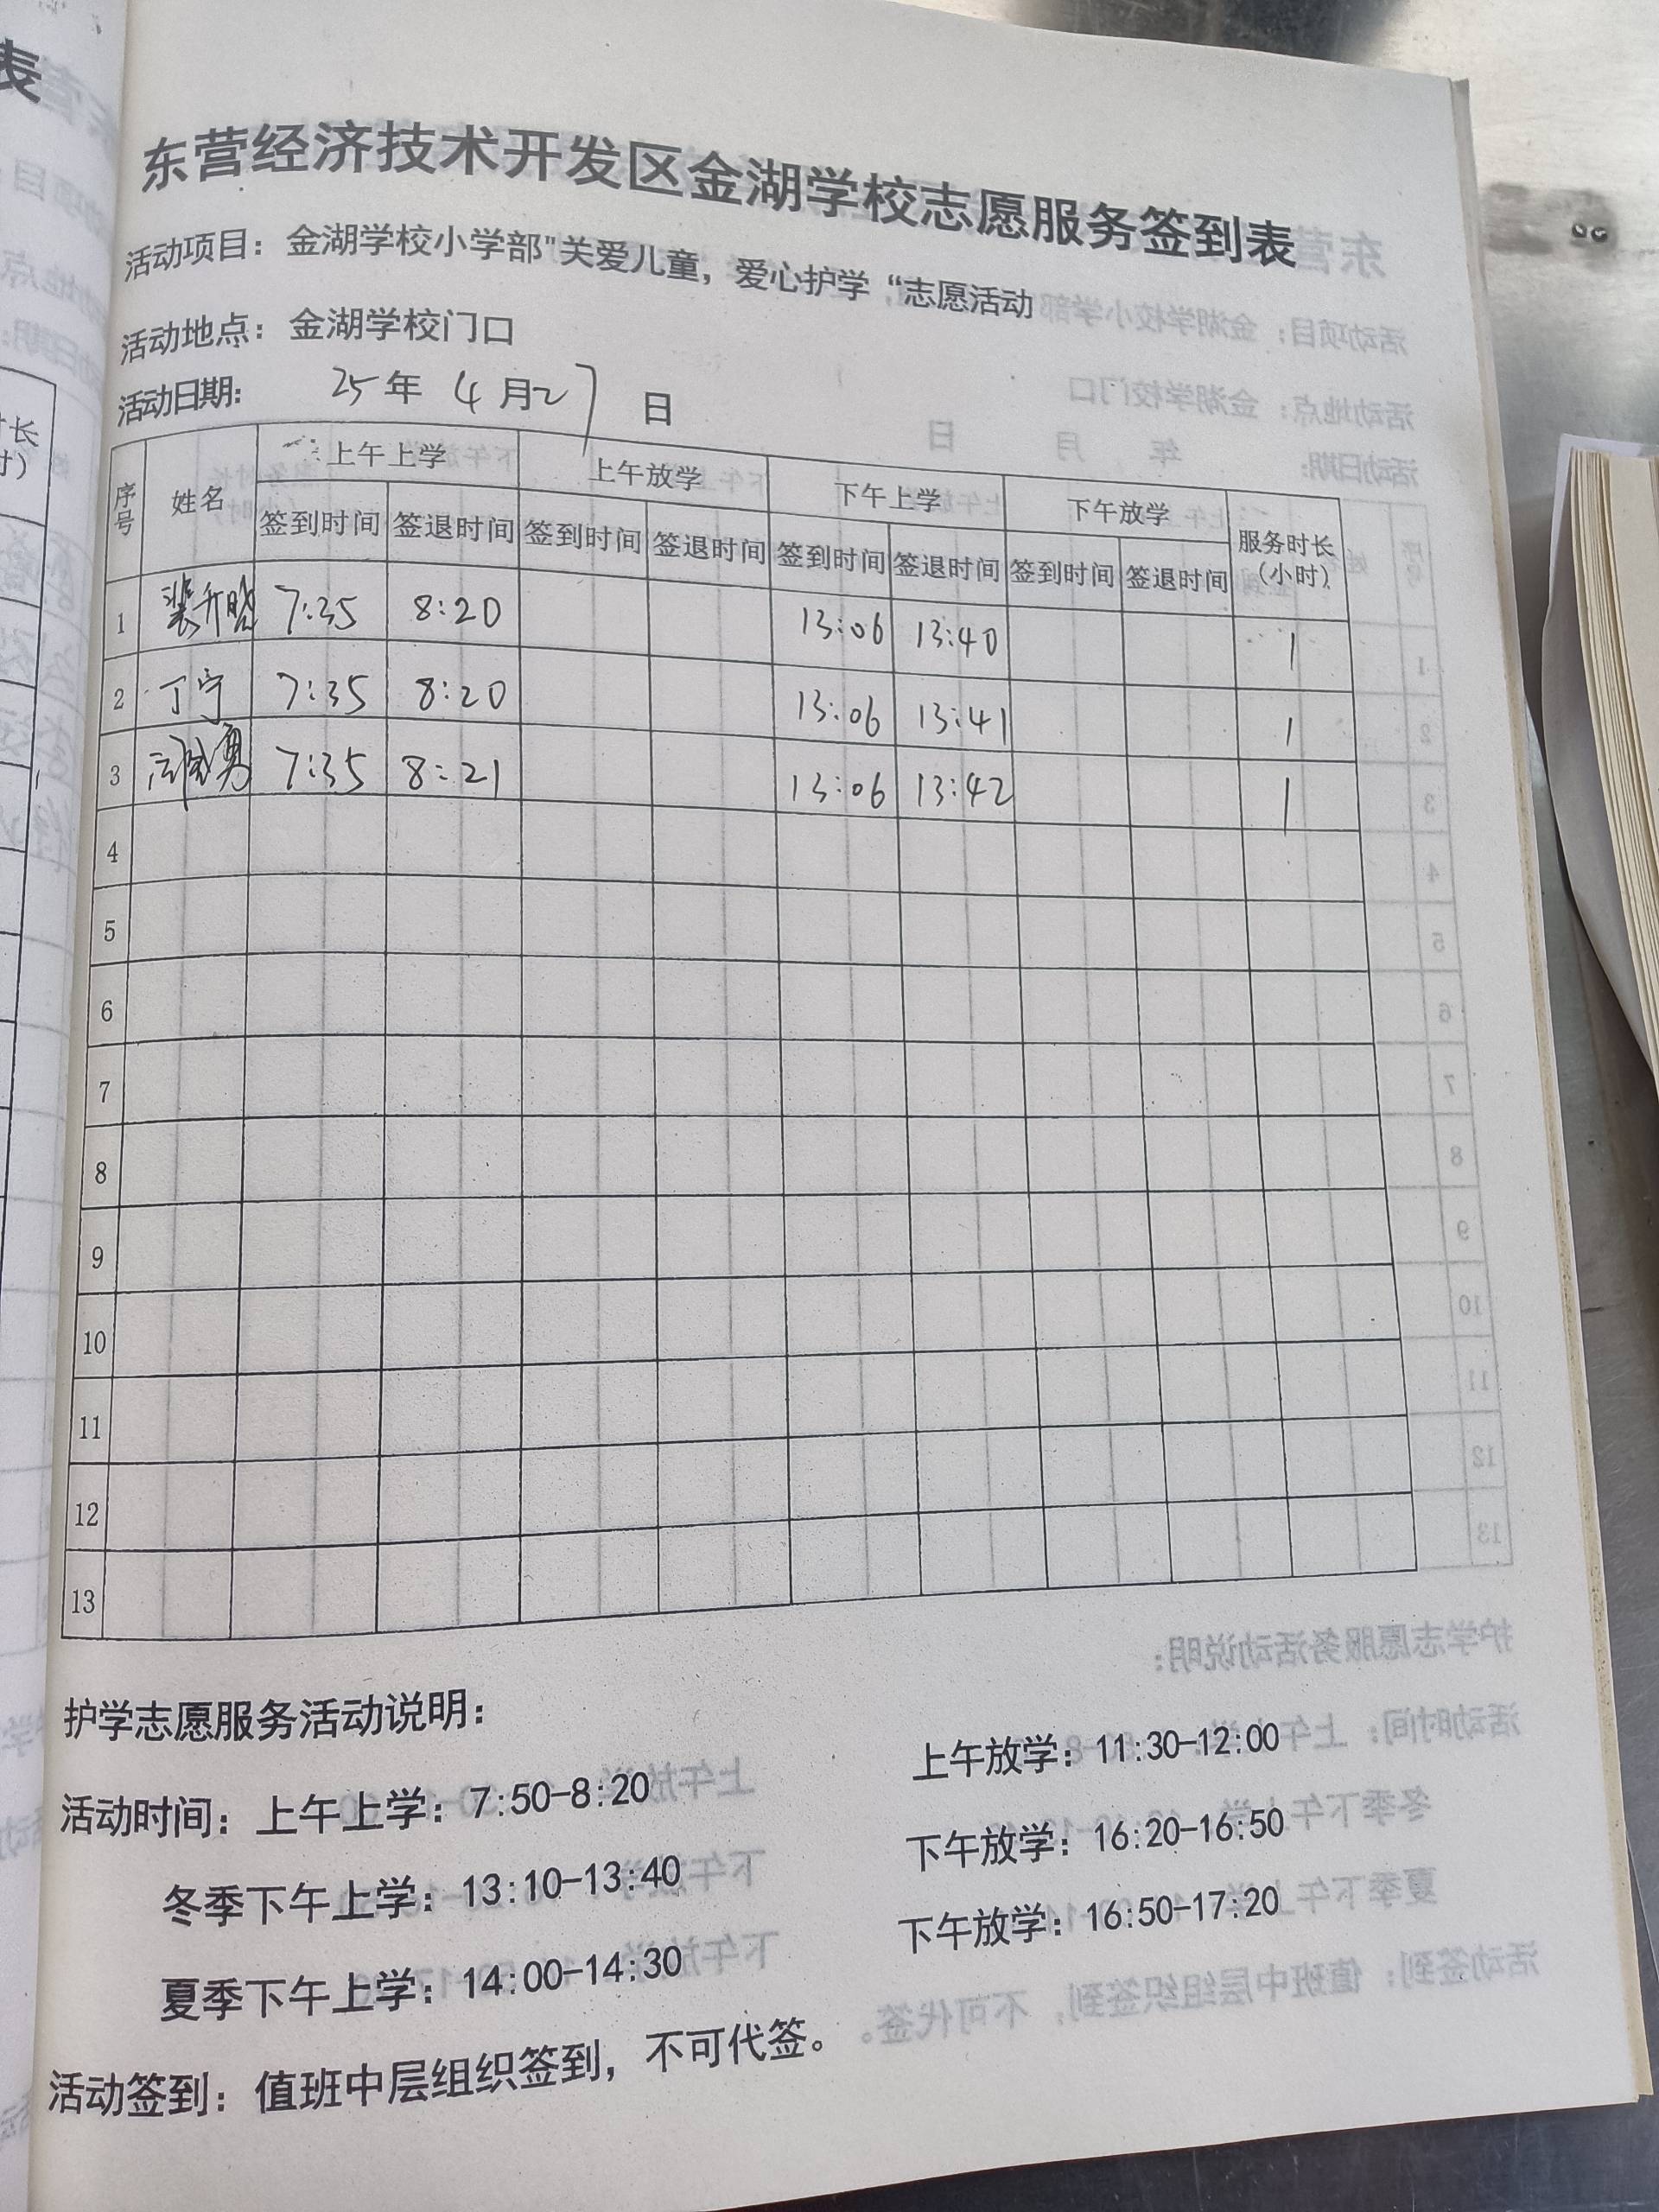 东营经济技术开发区金湖学校志愿服务签到表
活动项目：金湖学校小学部"关爱儿童，爱心护学“志愿活动
活动地点：金湖学校门口
活动日期： 25年 4月27日
序号 姓名 上午上学 上午放学 下午上学 下午放学 服务时长（小时）
签到时间 签退时间 签到时间 签退时间 签到时间 签退时间 签到时间 签退时间
1 7:35 8:20 13:06 13:40 1
2 丁宁 7:35 8:20 13:06 13:41 1
3 7:35 8:21 13:06 13:42 1
4
5
6
7
8
9
10
11
12
13
护学志愿服务活动说明：
活动时间：上午上学：7:50-8:20 上午放学：11:30-12:00
冬季下午上学：13:10-13:40 下午放学：16:20-16:50
夏季下午上学：14:00-14:30 下午放学：16:50-17:20
活动签到：值班中层组织签到，不可代签。